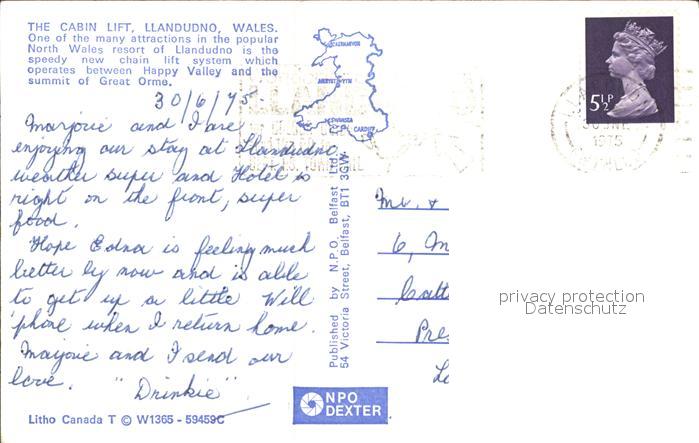 THE CABIN LIFT, LLANDUDNO, WALES.
One of the many attractions in the popular
North Wales resort of Llandudno is the
speedy new chain lift system which
operates between Happy Valley and the
summit of Great Orme.
30/6/75.
Marjorie and I are
enjoying our stay at Llandudno
weather super and Hotel is
right on the front, super
food.
Hope Edna is feeling much
better by now and is able
to get up a little Will
'phone when I return home.
Marjorie and I send our
love. "Drinkie"
Litho Canada T © W1365 - 59459C
CAERNARVON
ABERYSTWYTH
SWANSEA
CARDIFF
Published by N.P.O. Belfast Ltd.,
54 Victoria Street, Belfast, BT1 3GW.
NPO
DEXTER
5½P
30 JNE
1975
Mr. &
6, M
Catt
Pre
privacy protection
Datenschutz